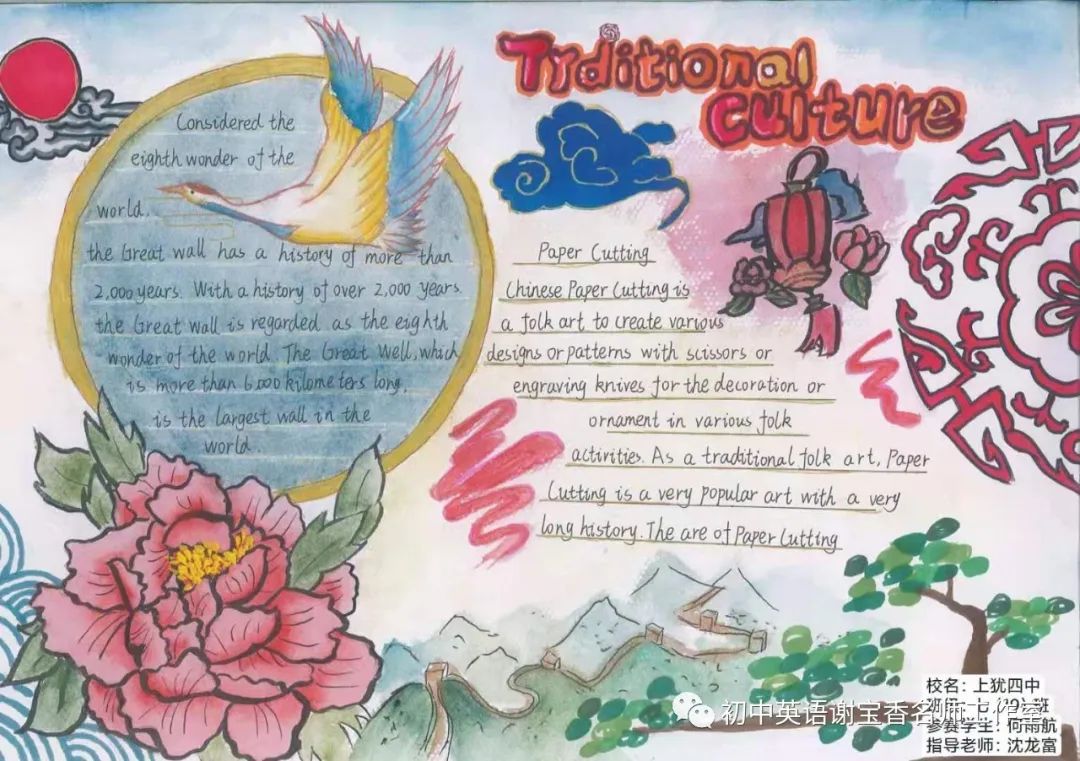 Trditional
Culture
Considered the
eighth wonder of the
world,
the Great wall has a history of more than
2,000 years. With a history of over 2,000 years.
the Great wall is regarded as the eighth
wonder of the world. The Great Well, which
is more than 6,000 kilometers long,
is the largest wall in the
world.
Paper Cutting
Chinese Paper Cutting is
a folk art to create various
designs or patterns with scissors or
engraving knives for the decoration or
ornament in various folk
activities. As a traditional folk art, Paper
Cutting is a very popular art with a very
long history. The are of Paper Cutting
校名：上犹四中
班
参赛学生：何雨航
指导老师：沈龙富
初中英语谢宝香名师工作室